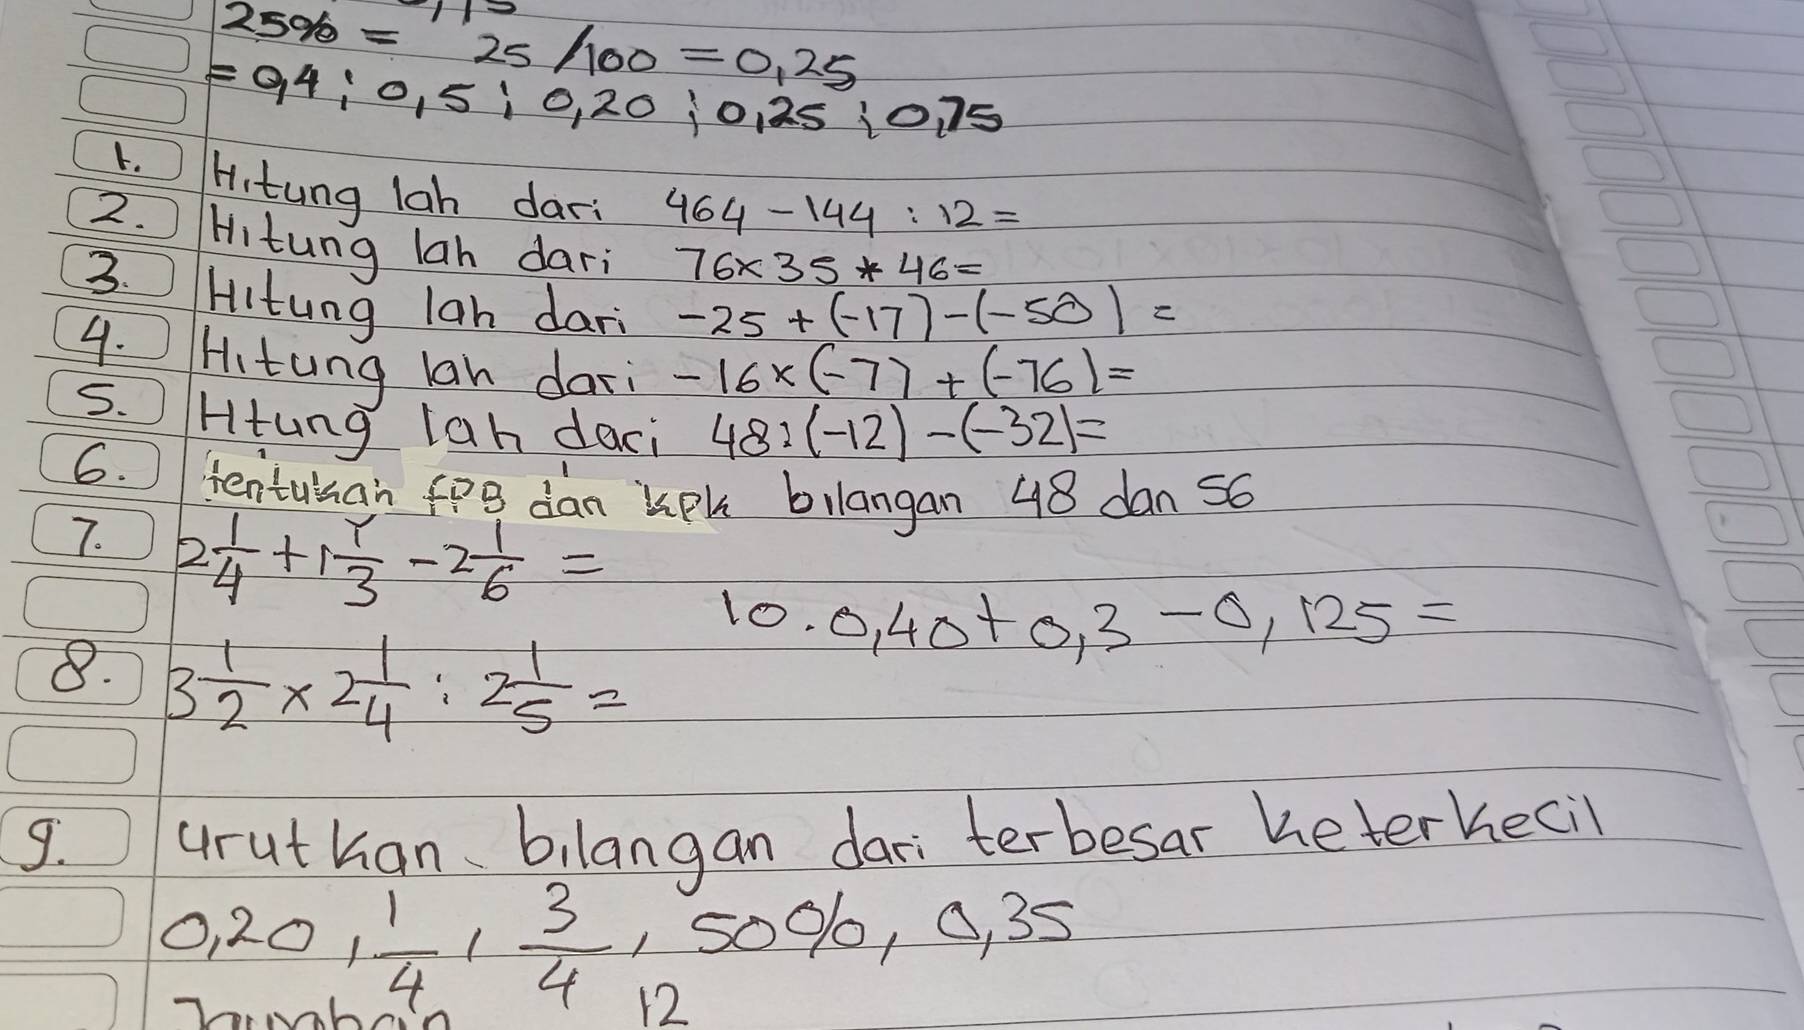 25% = 25/100 = 0,25
= 0,4 ; 0,5 ; 0,20 ; 0,25 ; 0,75
1. Hitung lah dari 464 - 144 : 12 =
2. Hitung lah dari 76 x 35 * 46 =
3. Hitung lah dari -25 + (-17) - (-50) =
4. Hitung lah dari -16 x (-7) + (-76) =
5. Htung lah dari 48 : (-12) - (-32) =
6. tentukan fPB dan kPk bilangan 48 dan 56
7. 2 1/4 + 1 1/3 - 2 1/6 =
10. 0,40 + 0,3 - 0,125 =
8. 3 1/2 x 2 1/4 : 2 1/5 =
9. urutkan bilangan dari terbesar keterkecil
0,20, 1/4, 3/4, 50%, 0,35
12